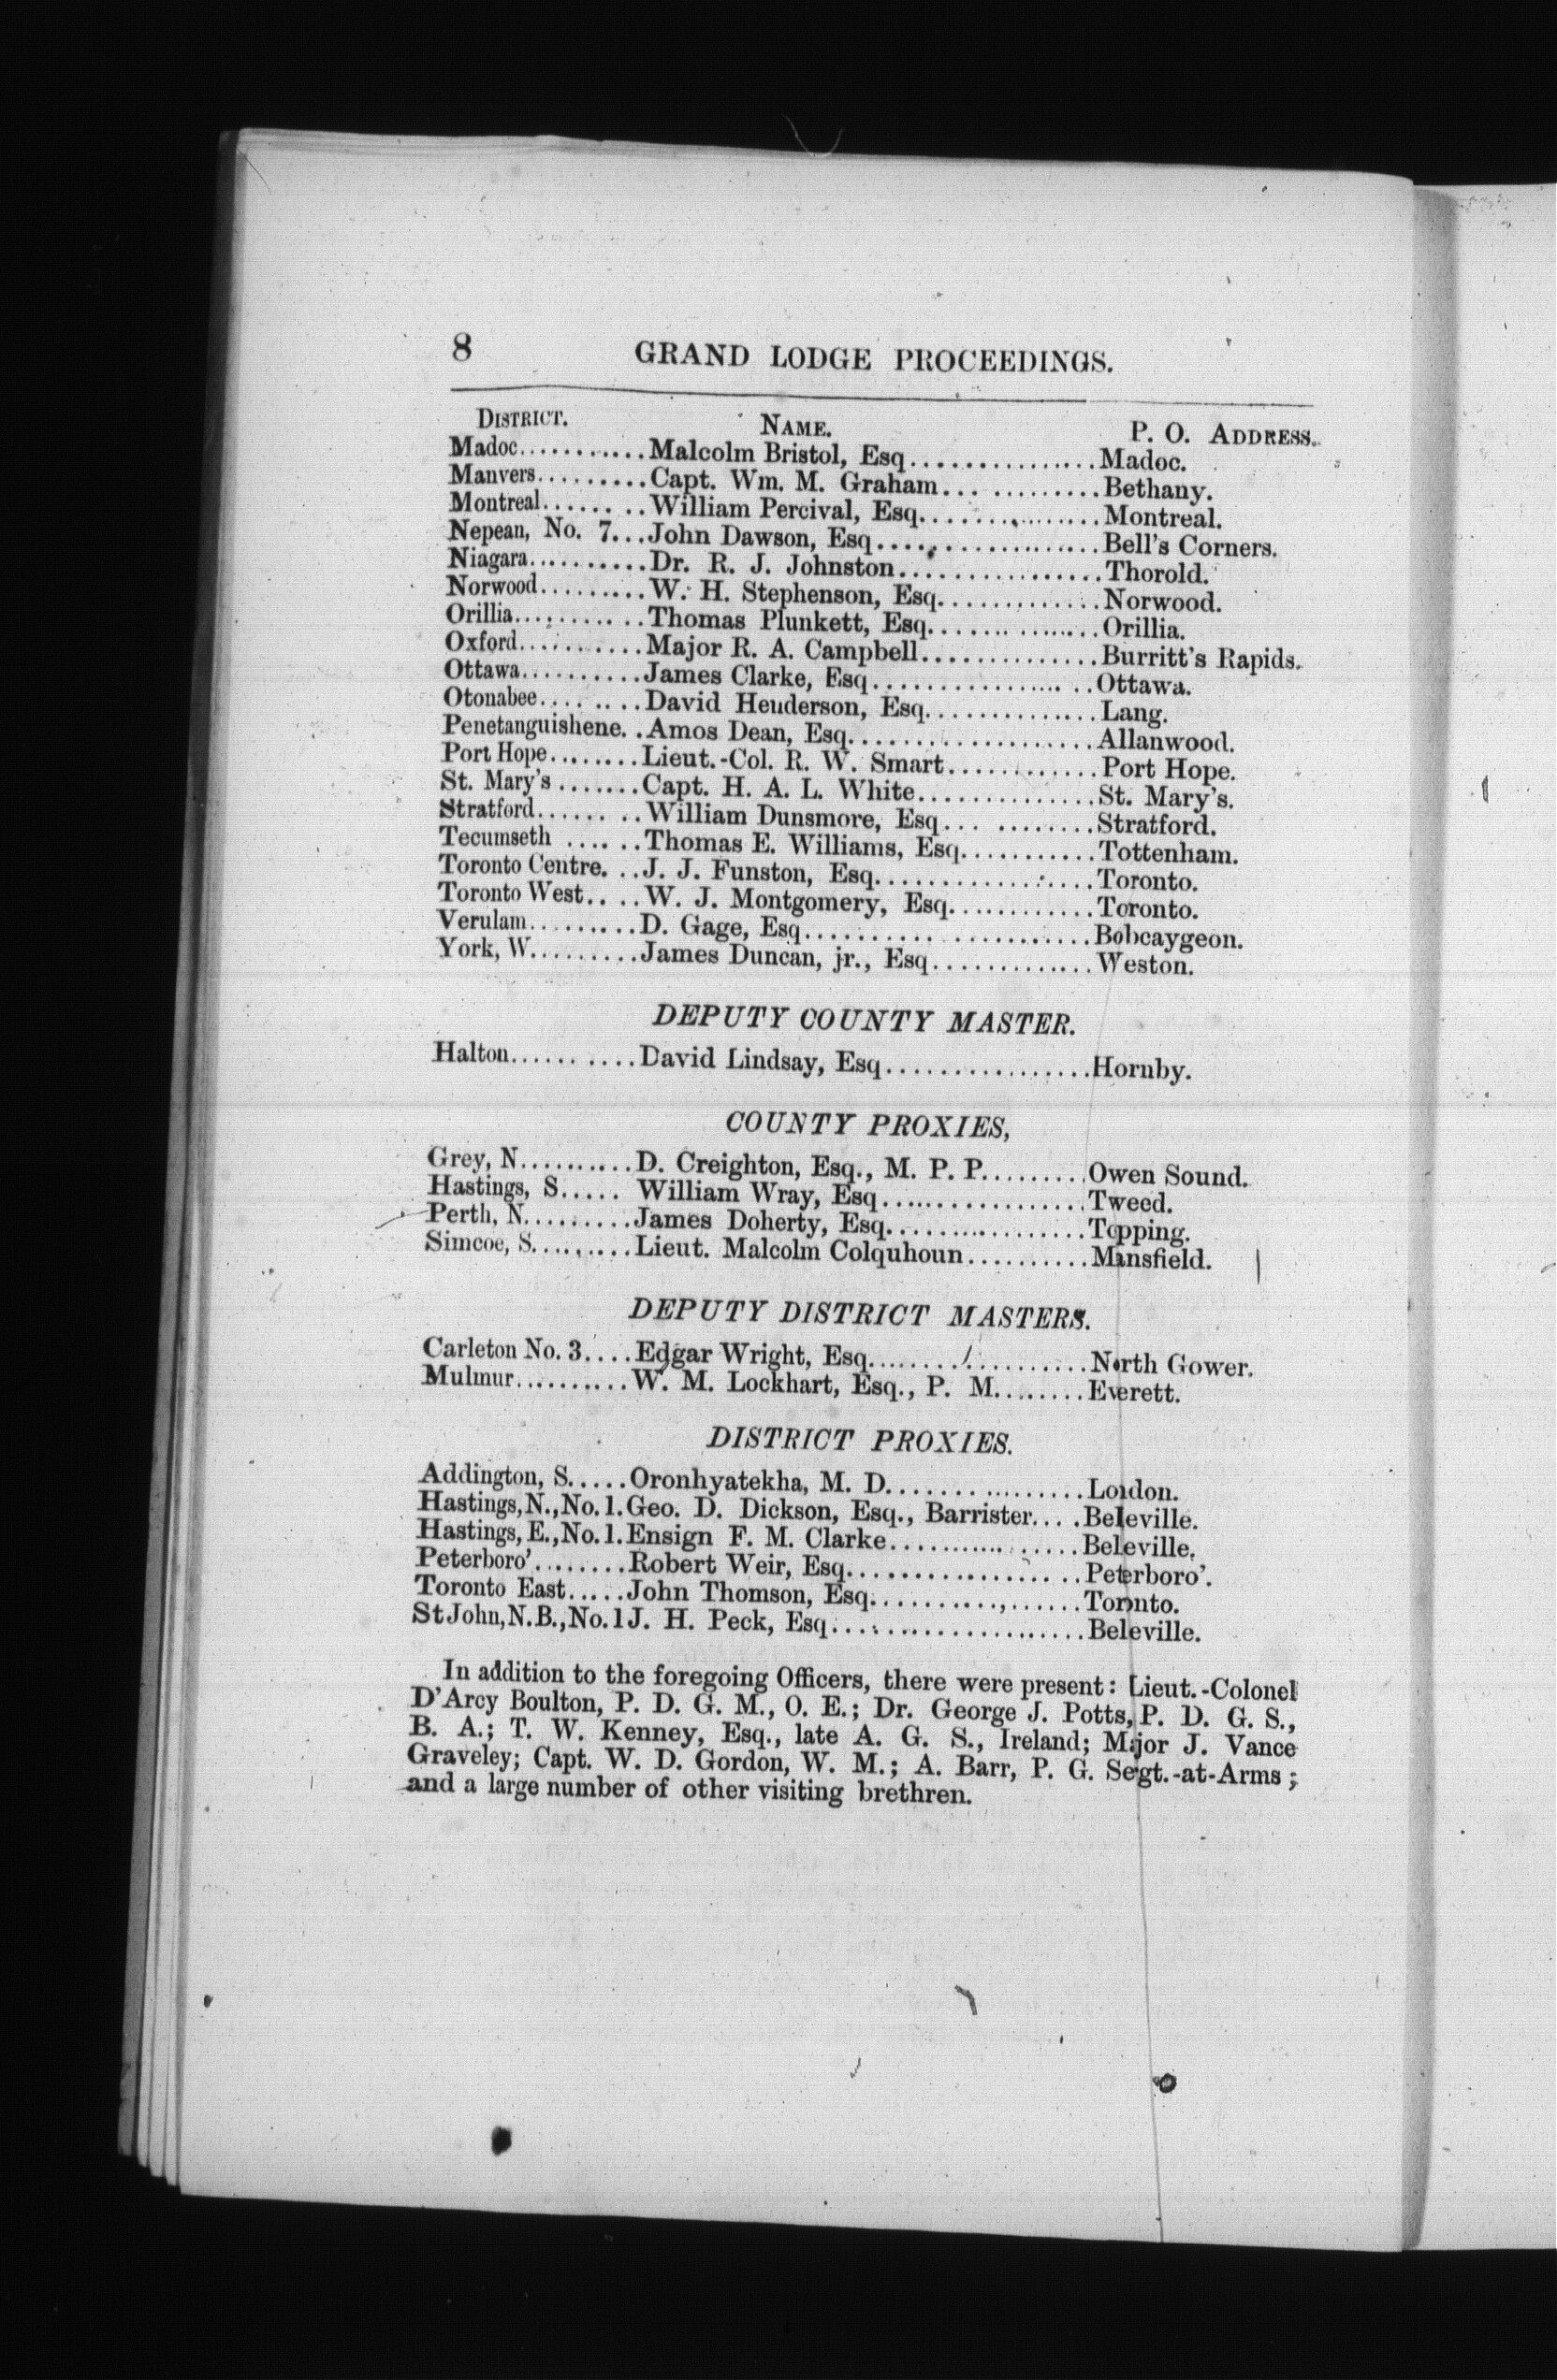 8 GRAND LODGE PROCEEDINGS.
DISTRICT. NAME. P. O. ADDRESS.
Madoc...........Malcolm Bristol, Esq...............Madoc.
Manvers.........Capt. Wm. M. Graham............Bethany.
Montreal........William Percival, Esq..............Montreal.
Nepean, No. 7...John Dawson, Esq..................Bell's Corners.
Niagara..........Dr. R. J. Johnston................Thorold.
Norwood.........W. H. Stephenson, Esq.............Norwood.
Orillia...........Thomas Plunkett, Esq..............Orillia.
Oxford...........Major R. A. Campbell..............Burritt's Rapids.
Ottawa..........James Clarke, Esq.................Ottawa.
Otonabee........David Henderson, Esq..............Lang.
Penetanguishene..Amos Dean, Esq...................Allanwood.
Port Hope........Lieut.-Col. R. W. Smart............Port Hope.
St. Mary's.......Capt. H. A. L. White..............St. Mary's.
Stratford........William Dunsmore, Esq............Stratford.
Tecumseth ......Thomas E. Williams, Esq...........Tottenham.
Toronto Centre...J. J. Funston, Esq.................Toronto.
Toronto West....W. J. Montgomery, Esq............Toronto.
Verulam..........D. Gage, Esq.....................Bobcaygeon.
York, W.........James Duncan, jr., Esq.............Weston.
DEPUTY COUNTY MASTER.
Halton...........David Lindsay, Esq................Hornby.
COUNTY PROXIES,
Grey, N..........D. Creighton, Esq., M. P. P.........Owen Sound.
Hastings, S..... William Wray, Esq................Tweed.
Perth, N.........James Doherty, Esq................Topping.
Simcoe, S.........Lieut. Malcolm Colquhoun..........Mansfield.
DEPUTY DISTRICT MASTERS.
Carleton No. 3....Edgar Wright, Esq.................North Gower.
Mulmur..........W. M. Lockhart, Esq., P. M........Everett.
DISTRICT PROXIES.
Addington, S.....Oronhyatekha, M. D................London.
Hastings, N., No. 1.Geo. D. Dickson, Esq., Barrister....Belleville.
Hastings, E., No. 1.Ensign F. M. Clarke...............Belleville.
Peterboro'........Robert Weir, Esq..................Peterboro'.
Toronto East.....John Thomson, Esq.................Toronto.
St John, N.B., No. 1 J. H. Peck, Esq...................Belleville.
In addition to the foregoing Officers, there were present: Lieut.-Colonel
D'Arcy Boulton, P. D. G. M., O. E.; Dr. George J. Potts, P. D. G. S.,
B. A.; T. W. Kenney, Esq., late A. G. S., Ireland; Major J. Vance
Graveley; Capt. W. D. Gordon, W. M.; A. Barr, P. G. Sergt.-at-Arms;
and a large number of other visiting brethren.